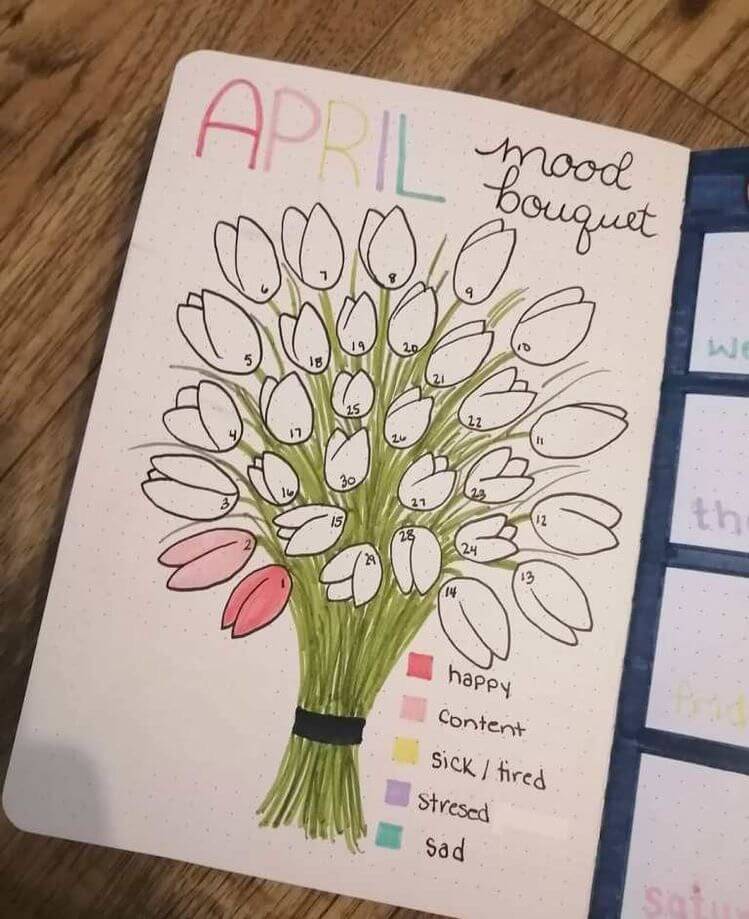 APRIL
mood
bouquet
6
7
8
9
5
18
19
20
21
10
4
17
25
26
22
11
3
16
30
27
23
12
2
15
28
24
1
29
14
13
happy
content
sick / tired
stresed
sad
we
th